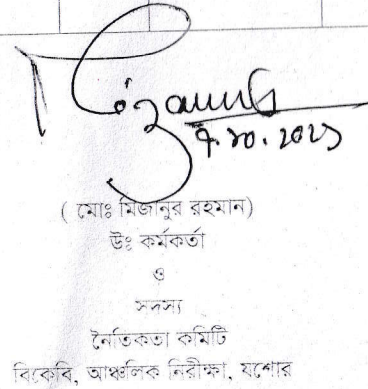 ( মোঃ মিজানুর রহমান)
উঃ কর্মকর্তা
ও
সদস্য
নৈতিকতা কমিটি
বিকেবি, আঞ্চলিক নিরীক্ষা, যশোর